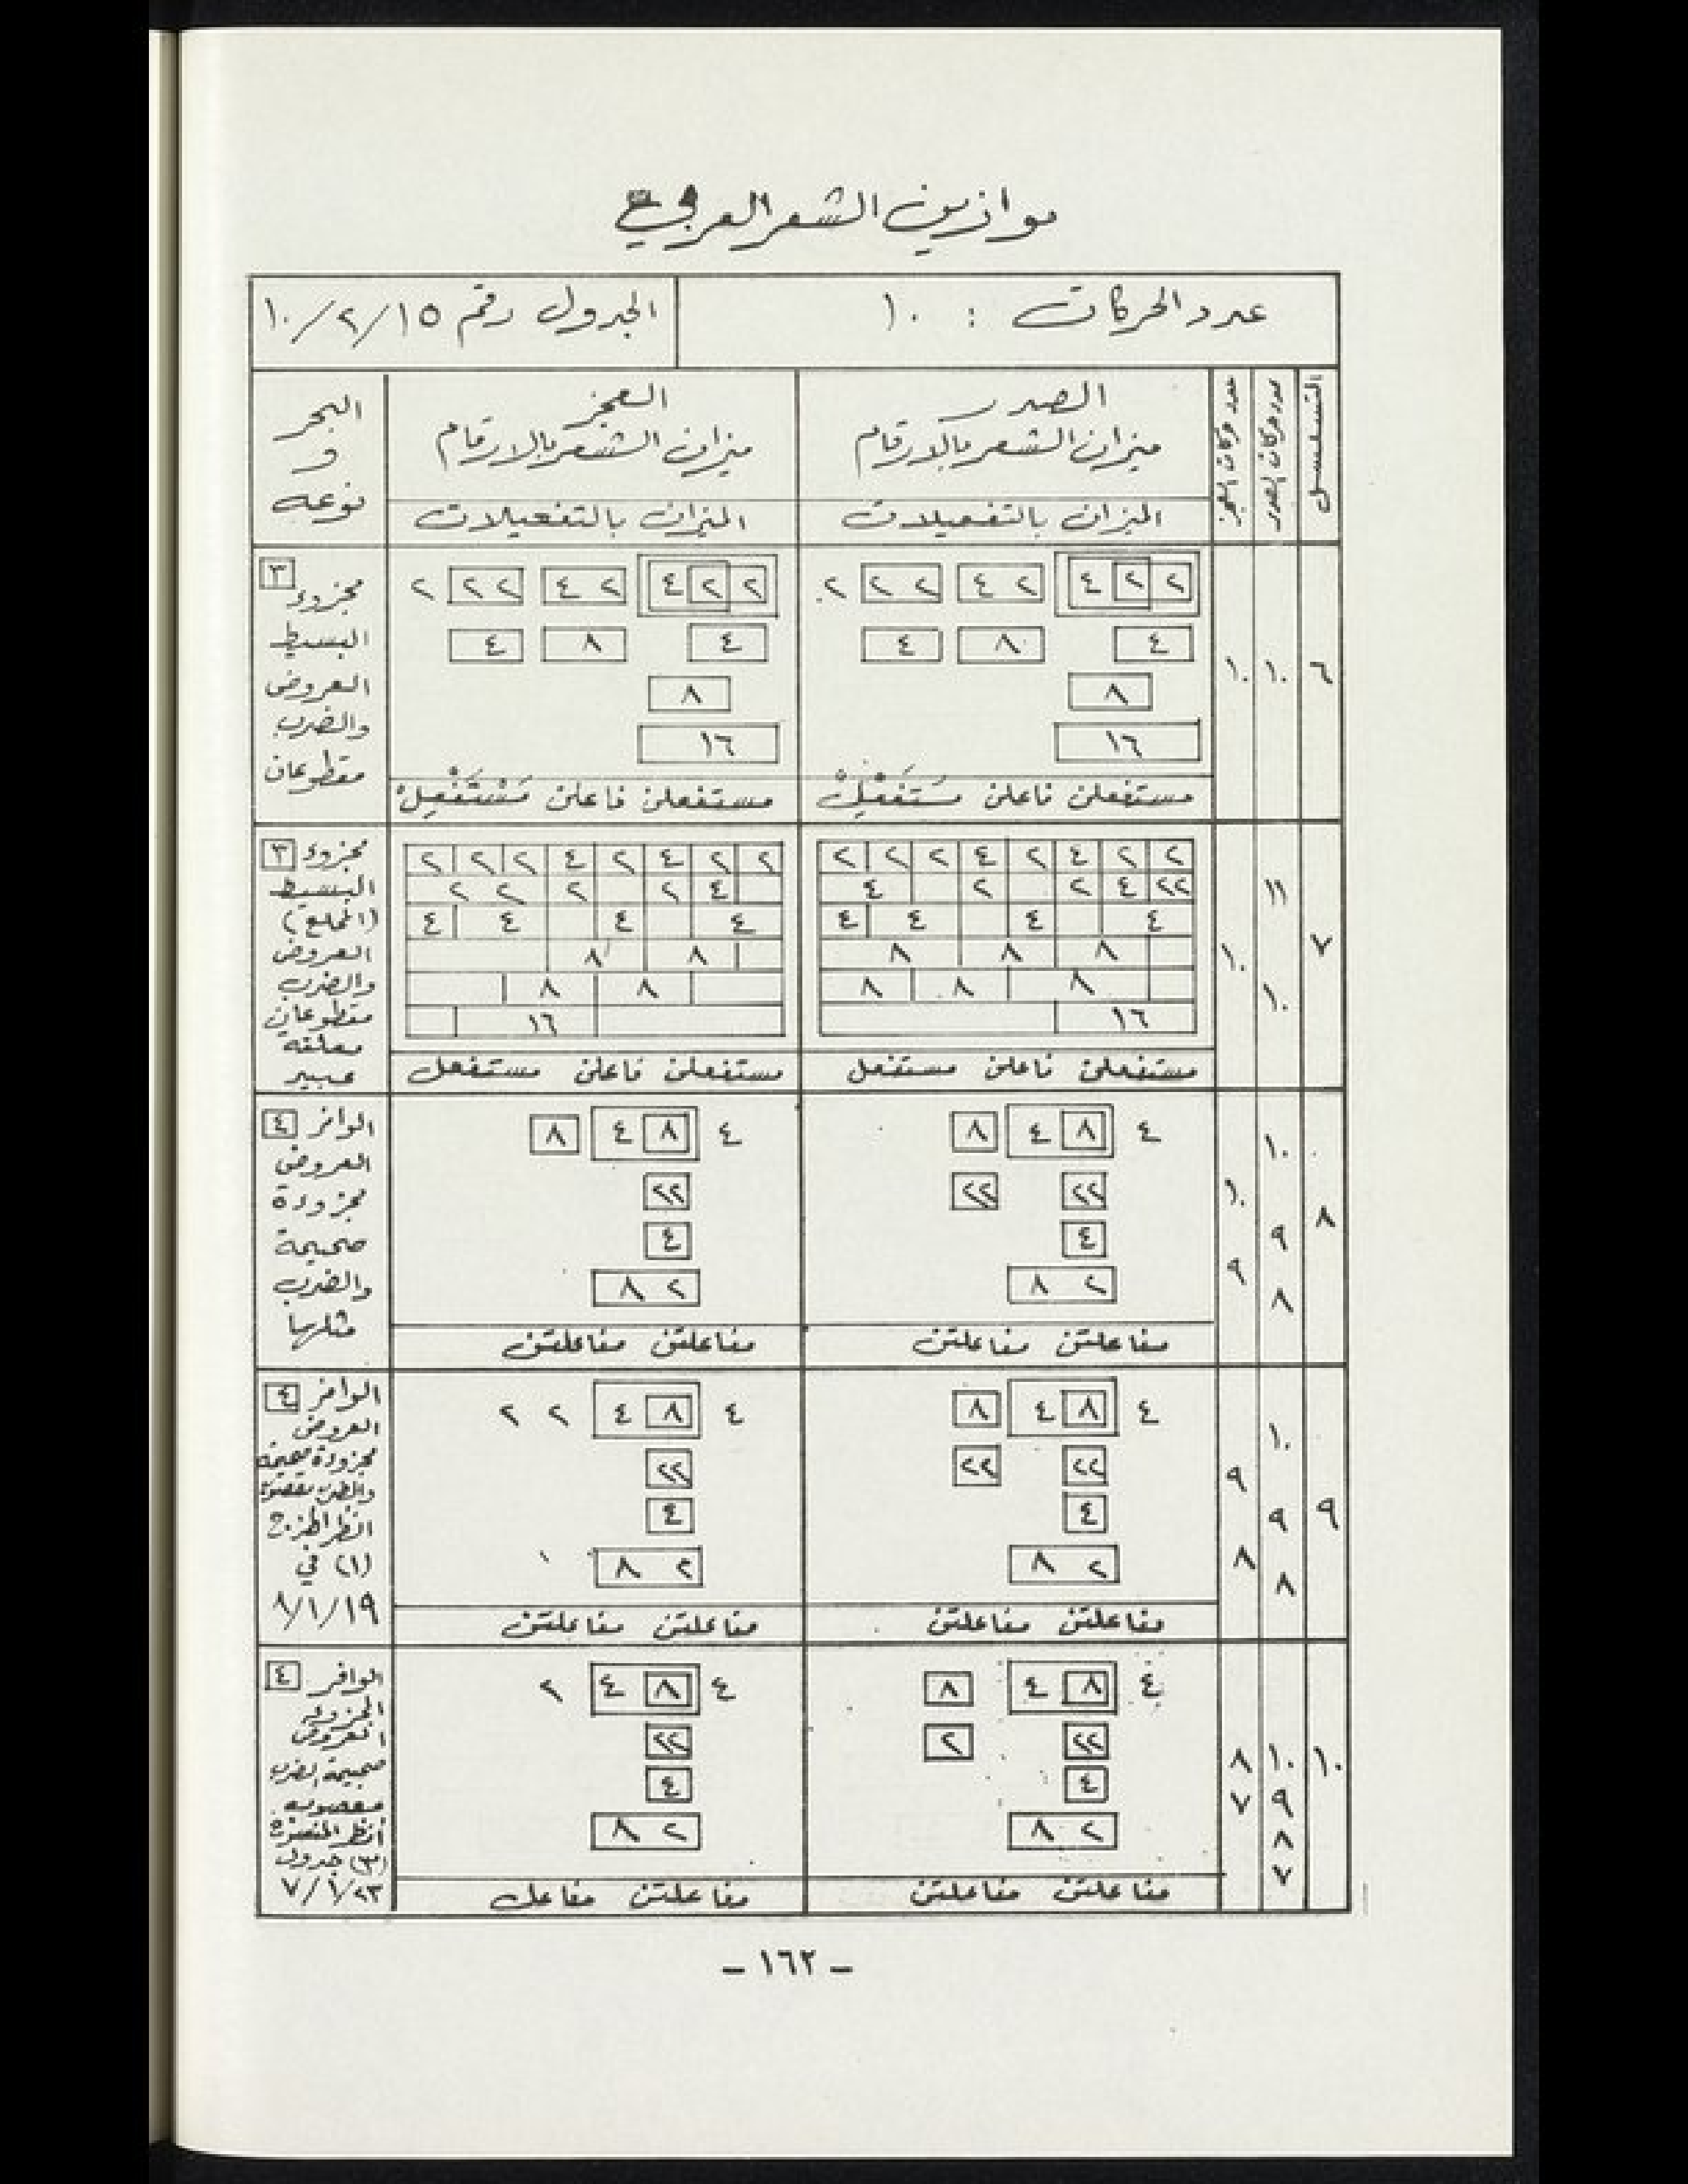 موازين الشعر العربي
عدد الحركات : ١٠
الجدول رقم ١٠/٢/١٥
التسلسل
عدد حركات الصدر
عدد حركات العجز
الصدر
ميزان الشعر بالارقام
الميزان بالتفعيلات
العجز
ميزان الشعر بالارقام
الميزان بالتفعيلات
البحر
و
نوعه
٦
١٠
١٠
٢ ٢ ٤ ٢ ٤ ٢ ٢ ٢
٤ ٨ ٤
٨
١٦
مستفعلن فاعلن مَسْتَفْعِلْ
٢ ٢ ٤ ٢ ٤ ٢ ٢ ٢
٤ ٨ ٤
٨
١٦
مستفعلن فاعلن مَسْتَفْعِلْ
مجزوء ٣
البسيط
العروض
والضرب
مقطوعان
٧
١١
١٠
١٠
٢ ٢ ٤ ٢ ٤ ٢ ٢ ٢
٢٢ ٤ ٢ ٢ ٤
٤ ٤ ٤ ٤
٨ ٨ ٨
٨ ٨ ٨
١٦
مستفعلن فاعلن مستفعل
٢ ٢ ٤ ٢ ٤ ٢ ٢ ٢
٤ ٢ ٢ ٢ ٢
٤ ٤ ٤ ٤
٨ ٨
٨ ٨
١٦
مستفعلن فاعلن مستفعل
مجزوء ٣
البسيط
(المخلع)
العروض
والضرب
مقطوعان
معلقة
عبير
٨
١٠
٩
٨
١٠
٩
٤ ٨ ٤ ٨
٢٢ ٢٢
٤
٢ ٨
مفاعلتن مفاعلتن
٤ ٨ ٤ ٨
٢٢
٤
٢ ٨
مفاعلتن مفاعلتن
الوافر ٤
العروض
مجزوءة
صحيحة
والضرب
مثلها
٩
١٠
٩
٨
٩
٨
٤ ٨ ٤ ٨
٢٢ ٢٢
٤
٢ ٨
مفاعلتن مفاعلتن
٤ ٨ ٤ ٢ ٢
٢٢
٤
٢ ٨
مفاعلتن مفاعلتن
الوافر ٤
العروض
مجزوءة صحيحة
والضرب معصوب
انظر الهزج
(١) في
٨/١/١٩
١٠
١٠
٩
٨
٧
٨
٧
٤ ٨ ٤ ٨
٢٢ ٢
٤
٢ ٨
مفاعلتن مفاعلتن
٤ ٨ ٤ ٢
٢٢
٤
٢ ٨
مفاعلتن مفاعل
الوافر ٤
المجزوء
العروض
صحيحة الضرب
معصوب
انظر المنسرح
(٣) جدول
٧/١/٢٣
– ١٦٢ –